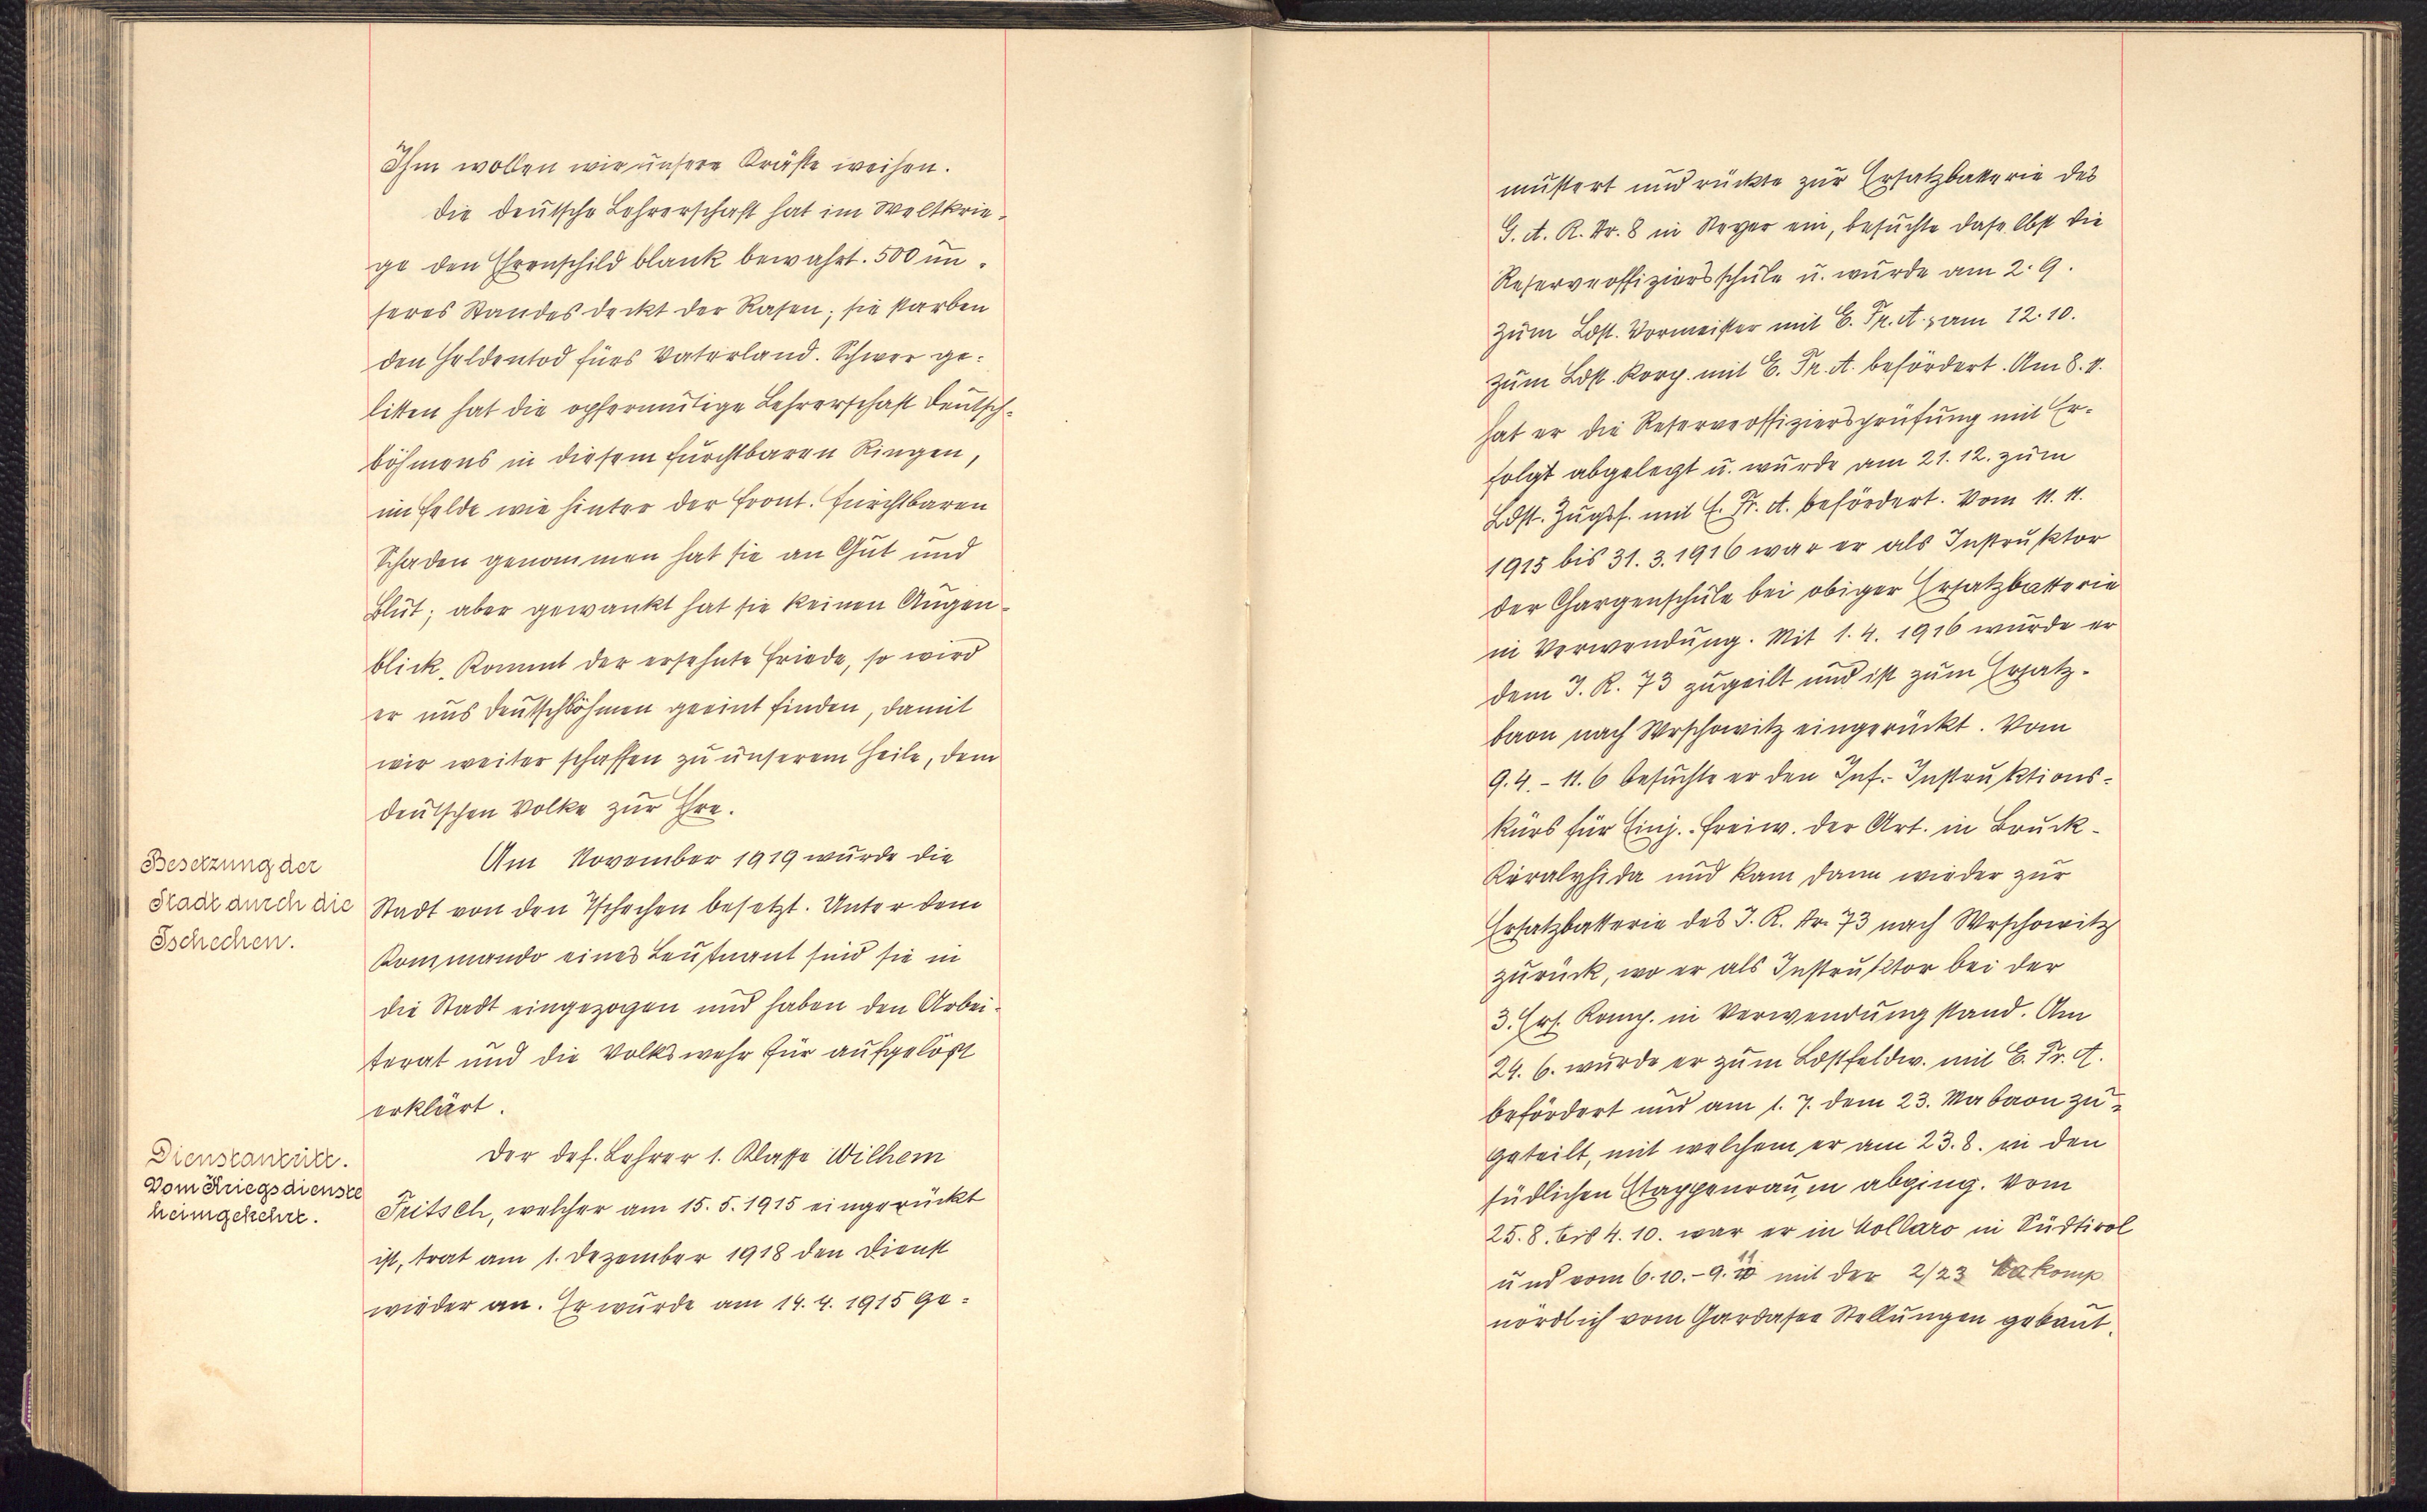 Ihm wollen wir unsere Kräfte weihen.
Die deutsche Lehrerschaft hat im Weltkrie-
ge den Ehrenschild blank bewahrt. 500 un-
seres Standes deckt der Rasen; sie starben
den Heldentod fürs Vaterland. Schwer ge-
litten hat die opfermutige Lehrerschaft Deutsch-
böhmens in diesem furchtbaren Ringen,
im Felde wie hinter der Front. Furchtbaren
Schaden genommen hat sie an Gut und
Blut; aber gewankt hat sie keinen Augen-
blick. Kommt der ersehnte Friede, so wird
er uns Deutschböhmen geeint finden, damit
wir weiter schaffen zu unserem Heile, dem
deutschen Volke zur Ehre.
Besetzung der
Stadt durch die
Tschechen.
Am November 1919 wurde die
Stadt von den Tschechen besetzt. Unter dem
Kommando eines Leutnant sind sie in
die Stadt eingezogen und haben den Arbei-
terat und die Volkswehr für aufgelöst
erklärt.
Dienstantritt.
Vom Kriegsdienste
heimgekehrt.
Der def. Lehrer 1. Klasse Wilhem
Fritsch, welcher am 15. 5. 1915 eingerückt
ist, trat am 1. Dezember 1918 den Dienst
wieder an. Er wurde am 14. 4. 1915 ge-
mustert und rückte zur Ersatzbatterie des
G. A. R. Nr. 8 in Steyer ein, besuchte daselbst die
Reserveoffiziersschule u. wurde am 2. 9.
zum Ldst. Vormeister mit E. Fr. A. am 12. 10.
zum Ldst. Korp. mit E. Fr. A. befördert. Am 8. 11.
hat er die Reserveoffiziersprüfung mit Er-
folgt abgelegt u. wurde am 21. 12. zum
Ldst. Zugsf. mit E. Fr. A. befördert. Vom 11. 11.
1915 bis 31. 3. 1916 war er als Instruktor
der Chargenschule bei obiger Ersatzbatterie
in Verwendung. Mit 1. 4. 1916 wurde er
dem J. R. 73 zugeilt und ist zum Ersatz-
baon nach Wrschowitz eingerückt. Vom
9. 4. - 11. 6 besuchte er den Inf.- Instruktions-
kurs für Einj.-Freiw. der Art. in Bruck-
Kiralyhida und kam dann wieder zur
Ersatzbatterie des J. R. Nr. 73 nach Wrschowitz
zurück, wo er als Instruktor bei der
3. Ers. Komp. in Verwendung stand. Am
24. 6. wurde er zum Ldstfeldw. mit E. Fr. A.
befördert und am 1. 7. dem 23. Mabaon zu-
geteilt, mit welchem er am 23. 8. in den
südlichen Etappenraum abging. Vom
25. 8. bis 4. 10. war er in Vollaro in Südtirol
und vom 6. 10. - 9. 11 mit der 2/23 Makomp
nördlich vom Gardasee Stellungen gebaut.